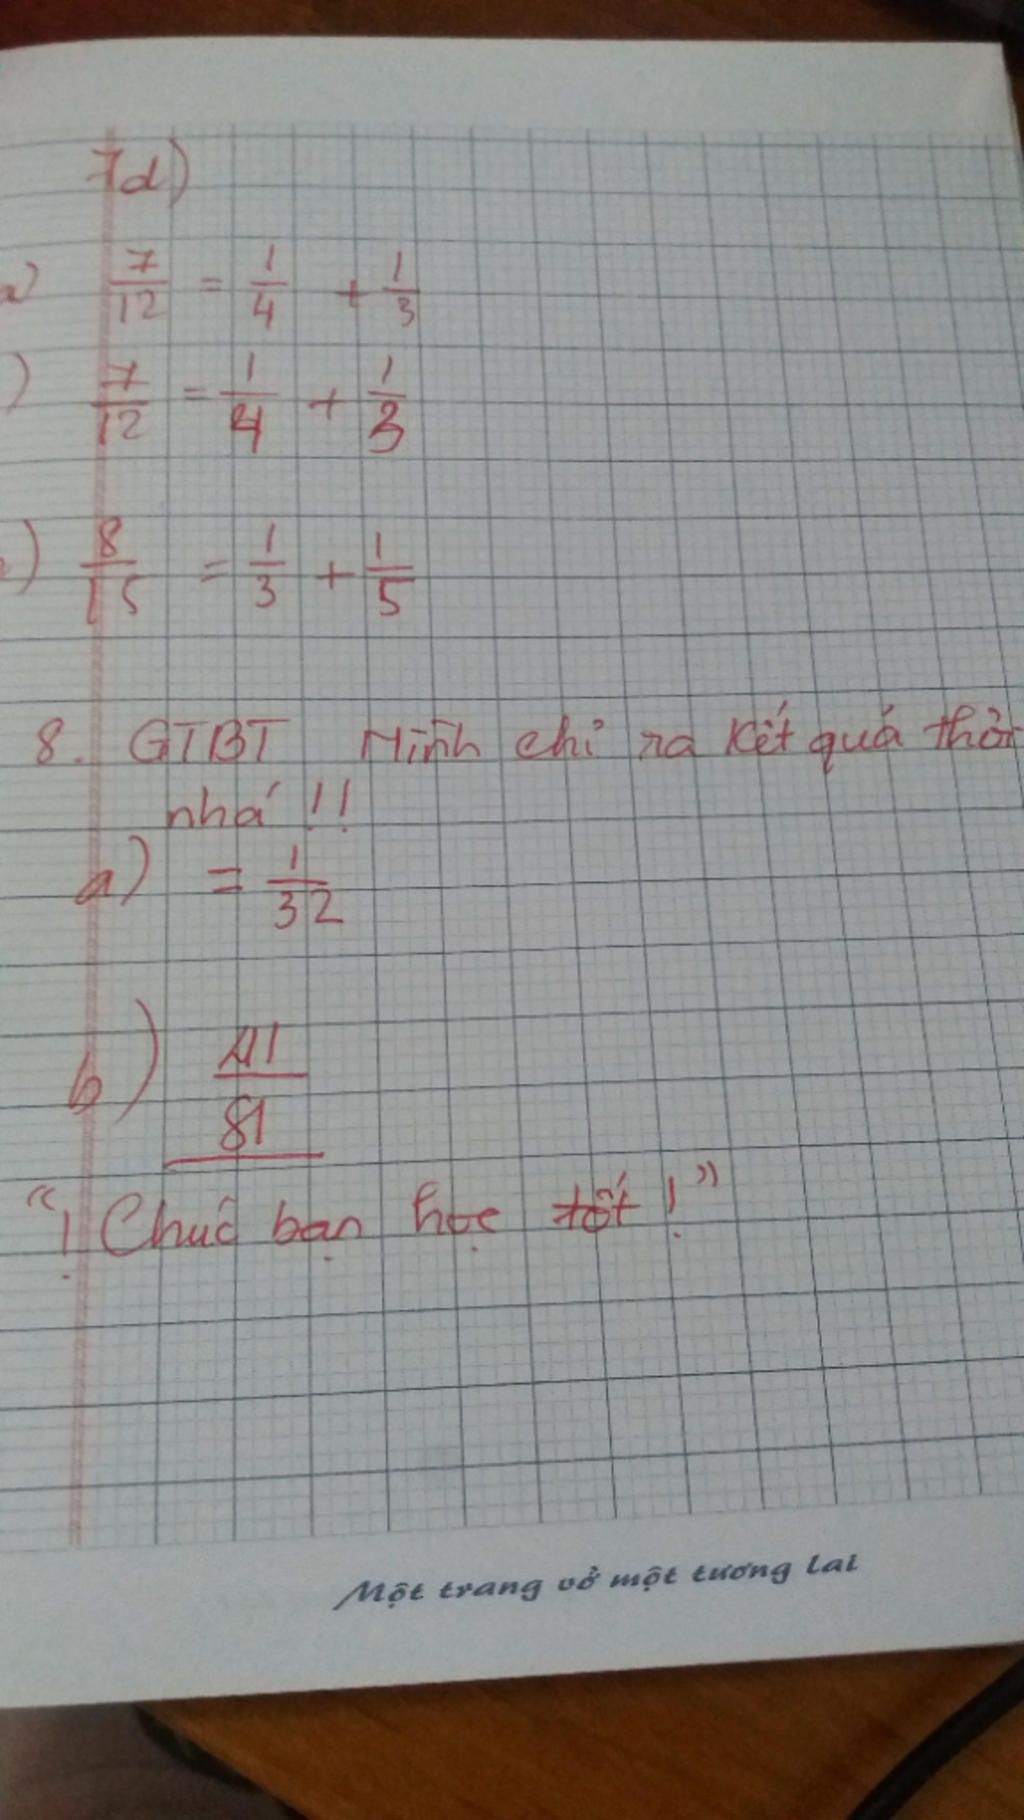 7d)
a) 7/12 = 1/4 + 1/3
) 7/12 = 1/4 + 1/3
) 8/15 = 1/3 + 1/5
8. GTBT Mình chỉ ra kết quả thôi
nhá !!
a) = 1/32
b) 41/81
"! Chúc bạn học tốt !"
Một trang vở một tương lai